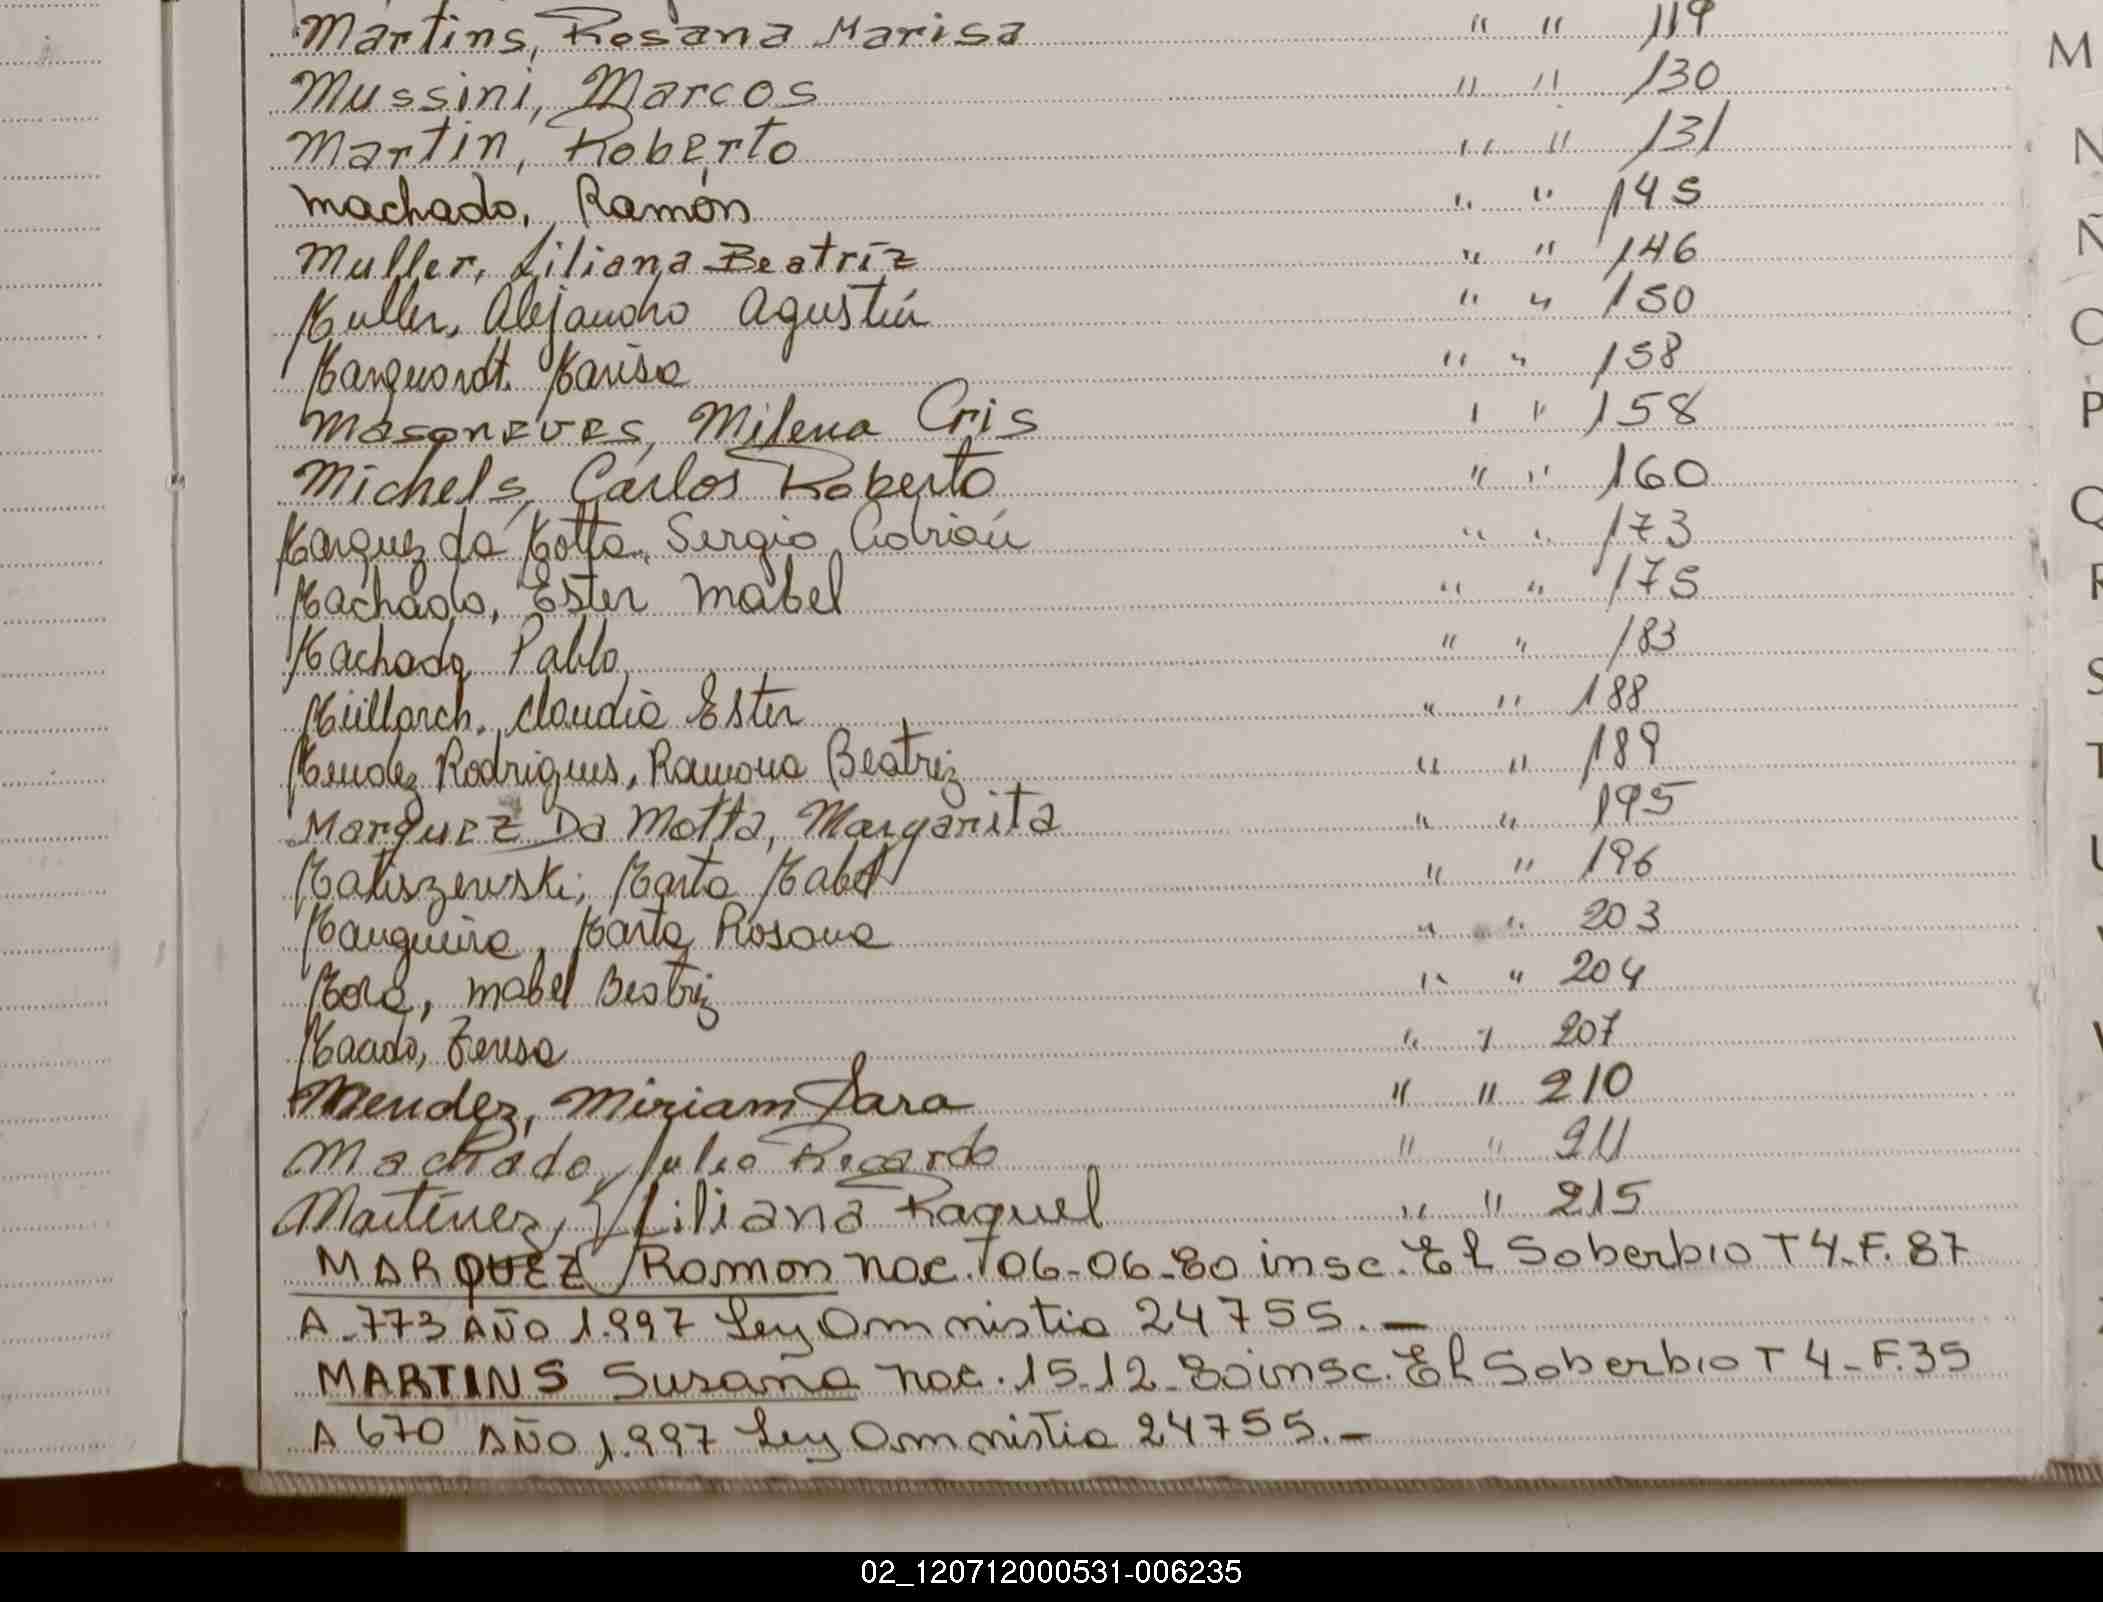 Martins, Rosana Marisa " " 119
Mussini, Marcos " " 130
Martin, Roberto " " 131
Machado, Ramón " " 145
Muller, Liliana Beatríz " " 146
Muller, Alejandro Agustín " " 150
Marquardt. Marisa " " 158
Masoneves, Milena Cris " " 158
Michels, Carlos Roberto " " 160
Marquez da Motta, Sergio Adrián " " 173
Machado, Ester Mabel " " 175
Machado, Pablo " " 183
Claudia Ester " " 188
Mendez Rodrigues, Ramona Beatriz " " 189
Marquez Da Motta, Margarita " " 195
Matiszewski, Marta Mabel " " 196
Mangueira, Marta Rosana " " 203
Mora, Mabel Beatriz " " 204
Teresa " " 207
Mendez, Miriam Sara " " 210
Machado, Julio Ricardo " " 211
Martínez, Liliana Raquel " " 215
MARQUEZ Ramon nac. 06-06-80 insc. El Soberbio T 4-F. 87
A-773 AÑO 1.997 Ley Amnistia 24755.-
MARTINS Susana nac. 15-12-80 insc. El Soberbio T 4-F.35
A 670 AÑO 1.997 Ley Amnistia 24755.-
M
N
Ñ
O
P
Q
R
S
T
U
V
02_120712000531-006235